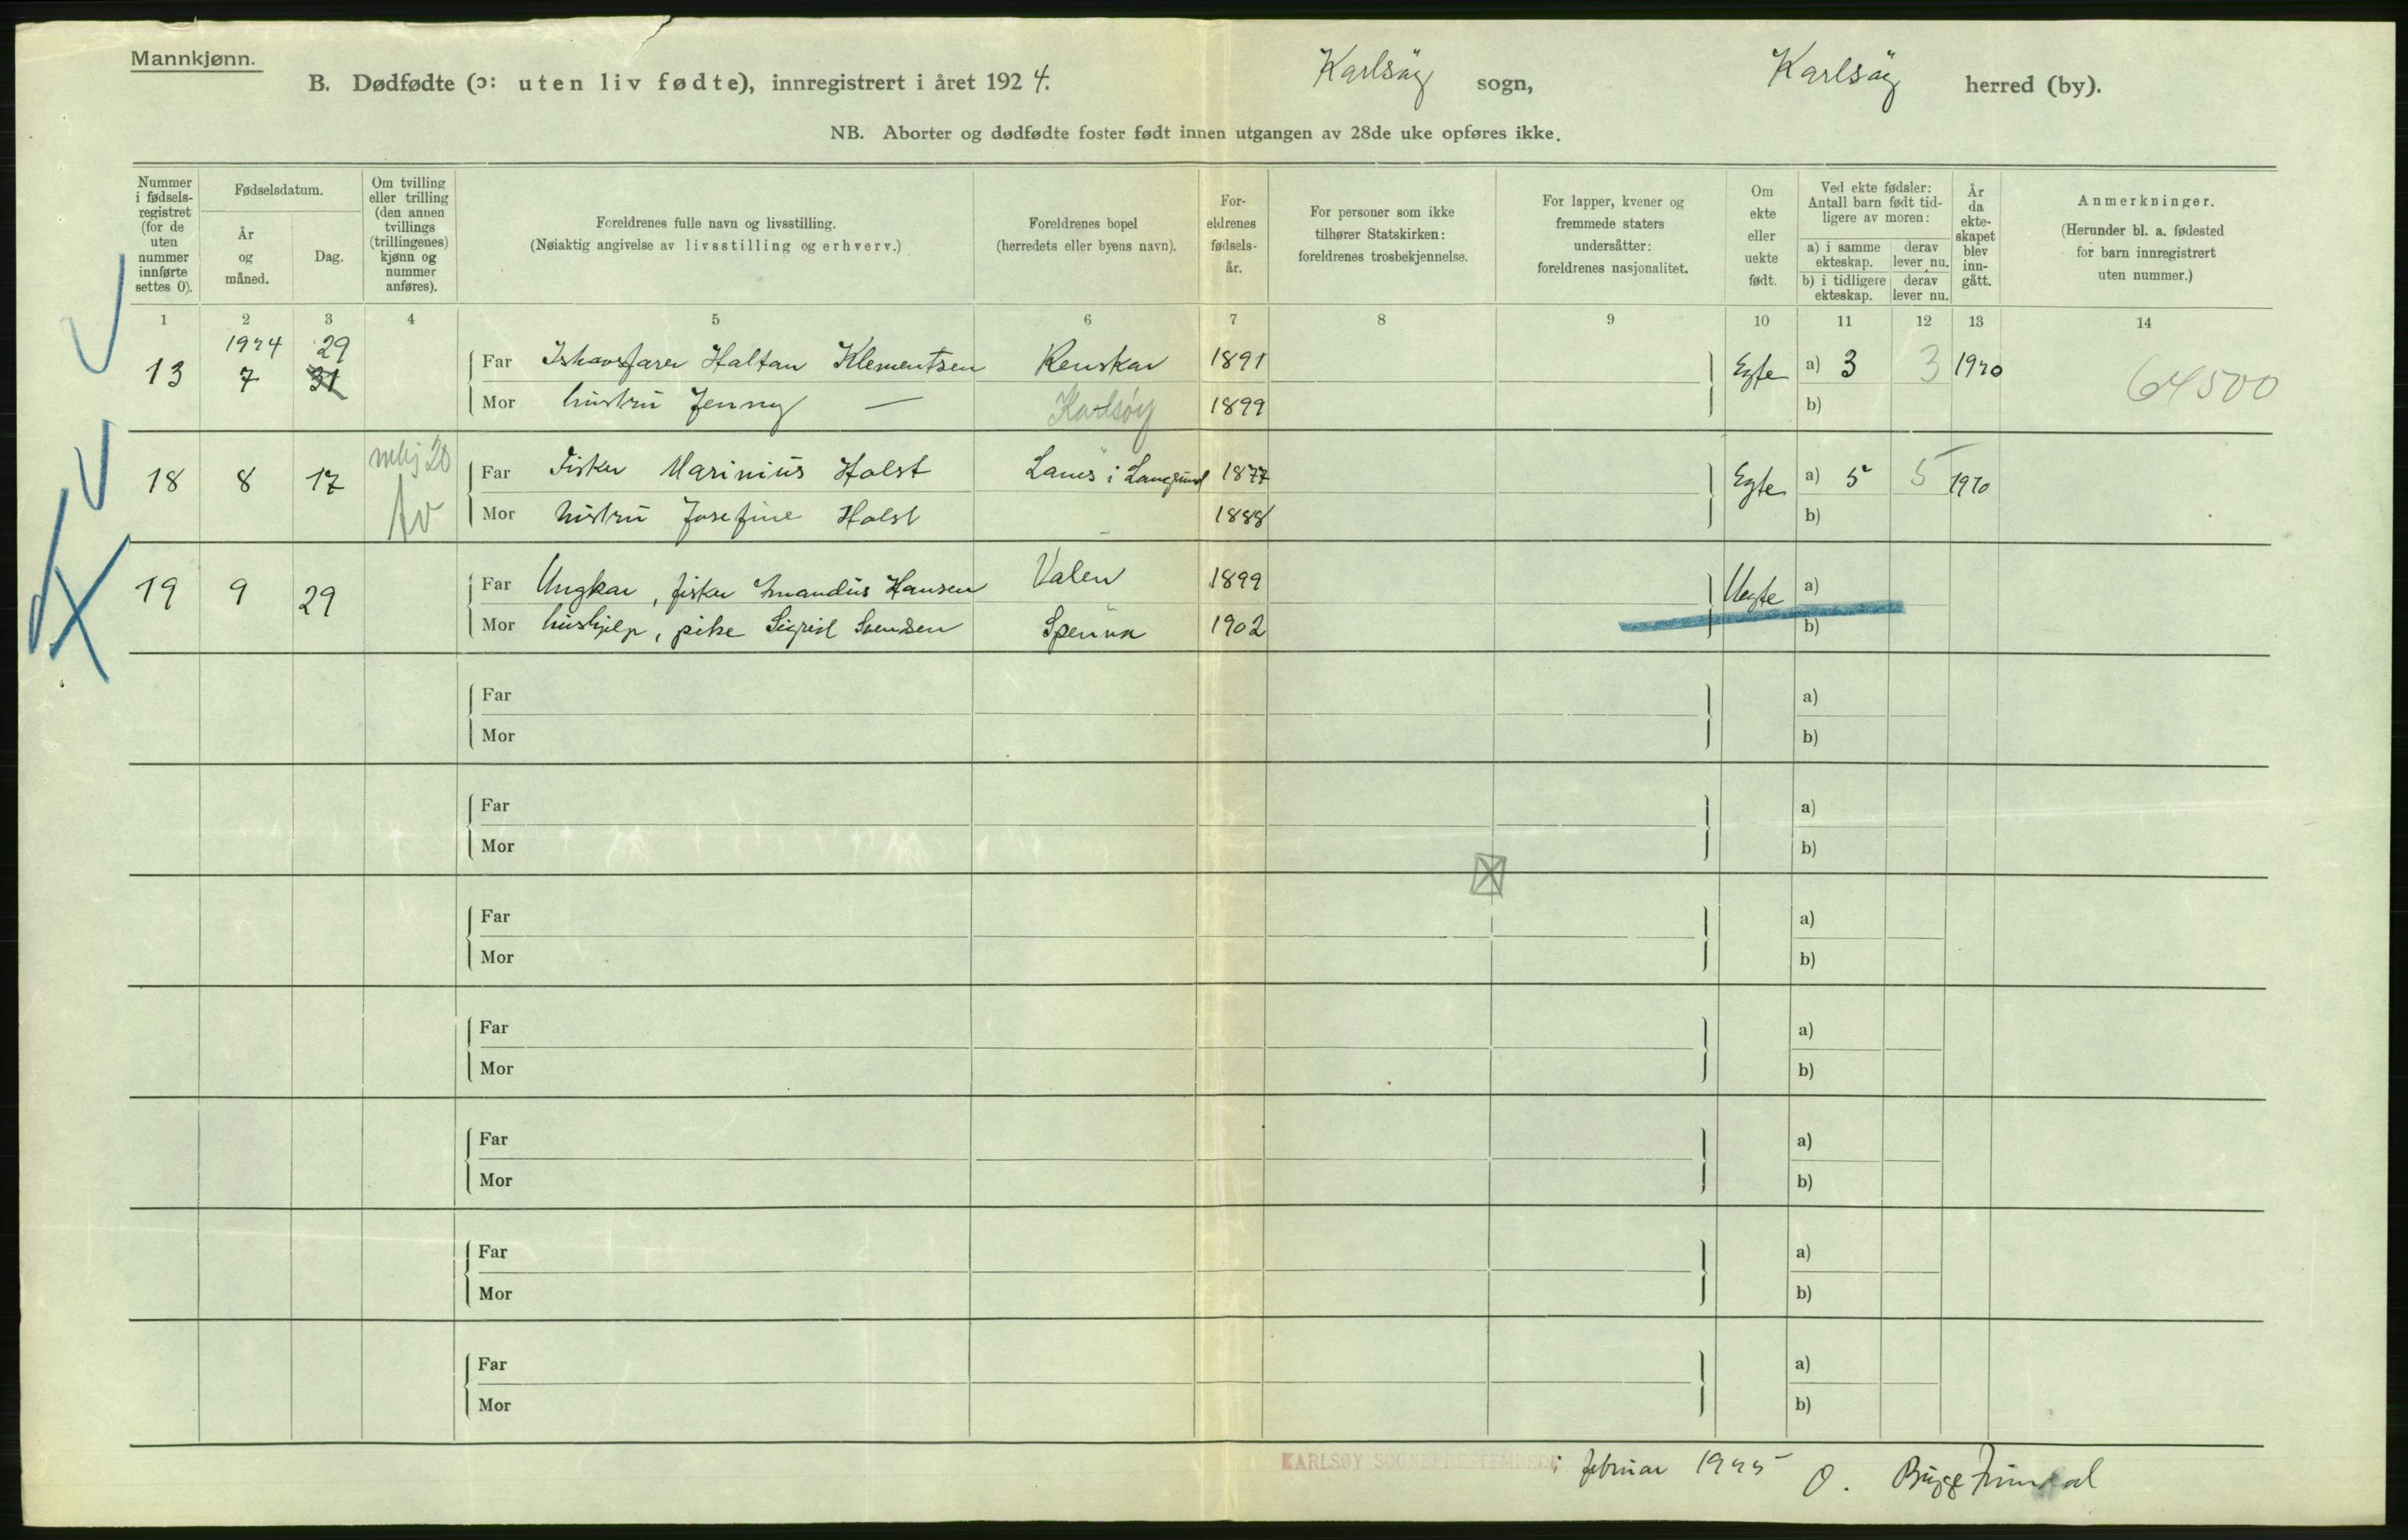 Mannkjønn.
B. Dødfødte (ɔ: uten liv fødte), innregistrert i året 1924. Karlsöy sogn, Karlsöy herred (by).
NB. Aborter og dødfødte foster født innen utgangen av 28de uke opføres ikke.
Nummer i fødsels-registret (for de uten nummer innførte settes 0).
Fødselsdatum.
År og måned.
Dag.
Om tvilling eller trilling (den annen tvillings (trillingenes) kjønn og nummer anføres).
Foreldrenes fulle navn og livsstilling.
(Nøiaktig angivelse av livsstilling og erhverv.)
Foreldrenes bopel
(herredets eller byens navn).
For-eldrenes fødsels-år.
For personer som ikke tilhører Statskirken: foreldrenes trosbekjennelse.
For lapper, kvener og fremmede staters undersåtter: foreldrenes nasjonalitet.
Om ekte eller uekte født.
Ved ekte fødsler: Antall barn født tid-ligere av moren:
a) i samme ekteskap.
derav lever nu.
b) i tidligere ekteskap.
derav lever nu.
År da ekte-skapet blev inn-gått.
Anmerkninger.
(Herunder bl. a. fødested for barn innregistrert uten nummer.)
1 2 3 4 5 6 7 8 9 10 11 12 13 14
1924 29
13 7 31 Far Ishavsfarer Haltan Klementsen Renskar 1891 Egte a) 3 3 1920 64500
Mor hustru Jenny — Karlsøy 1899 b)
18 8 17 Far Fisker Marinius Holst i 1877 Egte a) 5 5 1910
Mor hustru Josefine Holst 1888 b)
19 9 29 Far Ungkar, fisker Hansen Valen 1899 Uegte a)
Mor hushjelp, pike Sigrid Svendsen 1902 b)
Far a)
Mor b)
Far a)
Mor b)
Far a)
Mor b)
Far a)
Mor b)
Far a)
Mor b)
Far a)
Mor b)
Far a)
Mor b)
KARLSØY SOGNEPRESTEMBEDE februar 1925 O. Bugge